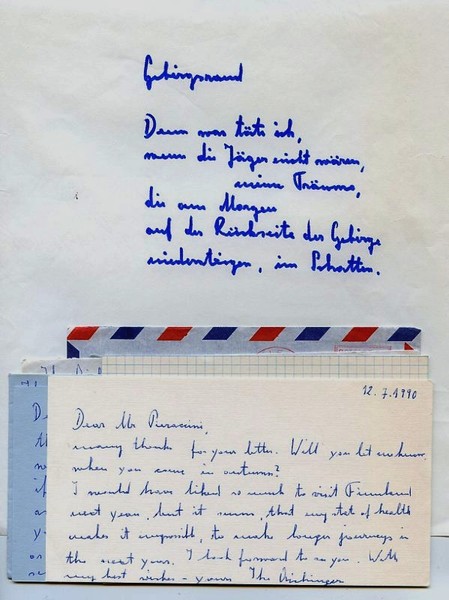 Gebirgsrand
Denn was täte ich,
wenn die Jäger nicht wären,
meine Träume,
die am Morgen
auf der Rückseite der Gebirge
niedersteigen, im Schatten.
12.7.1990
Dear Mr
many thanks for your letter. Will you let me know,
when you come in autumn?
I would have liked so much to visit Finnland
next year, but it seems, that my state of health
makes it impossible, to make longer journeys in
the next years. I look forward to see you. With
very best wishes - yours Ilse Aichinger